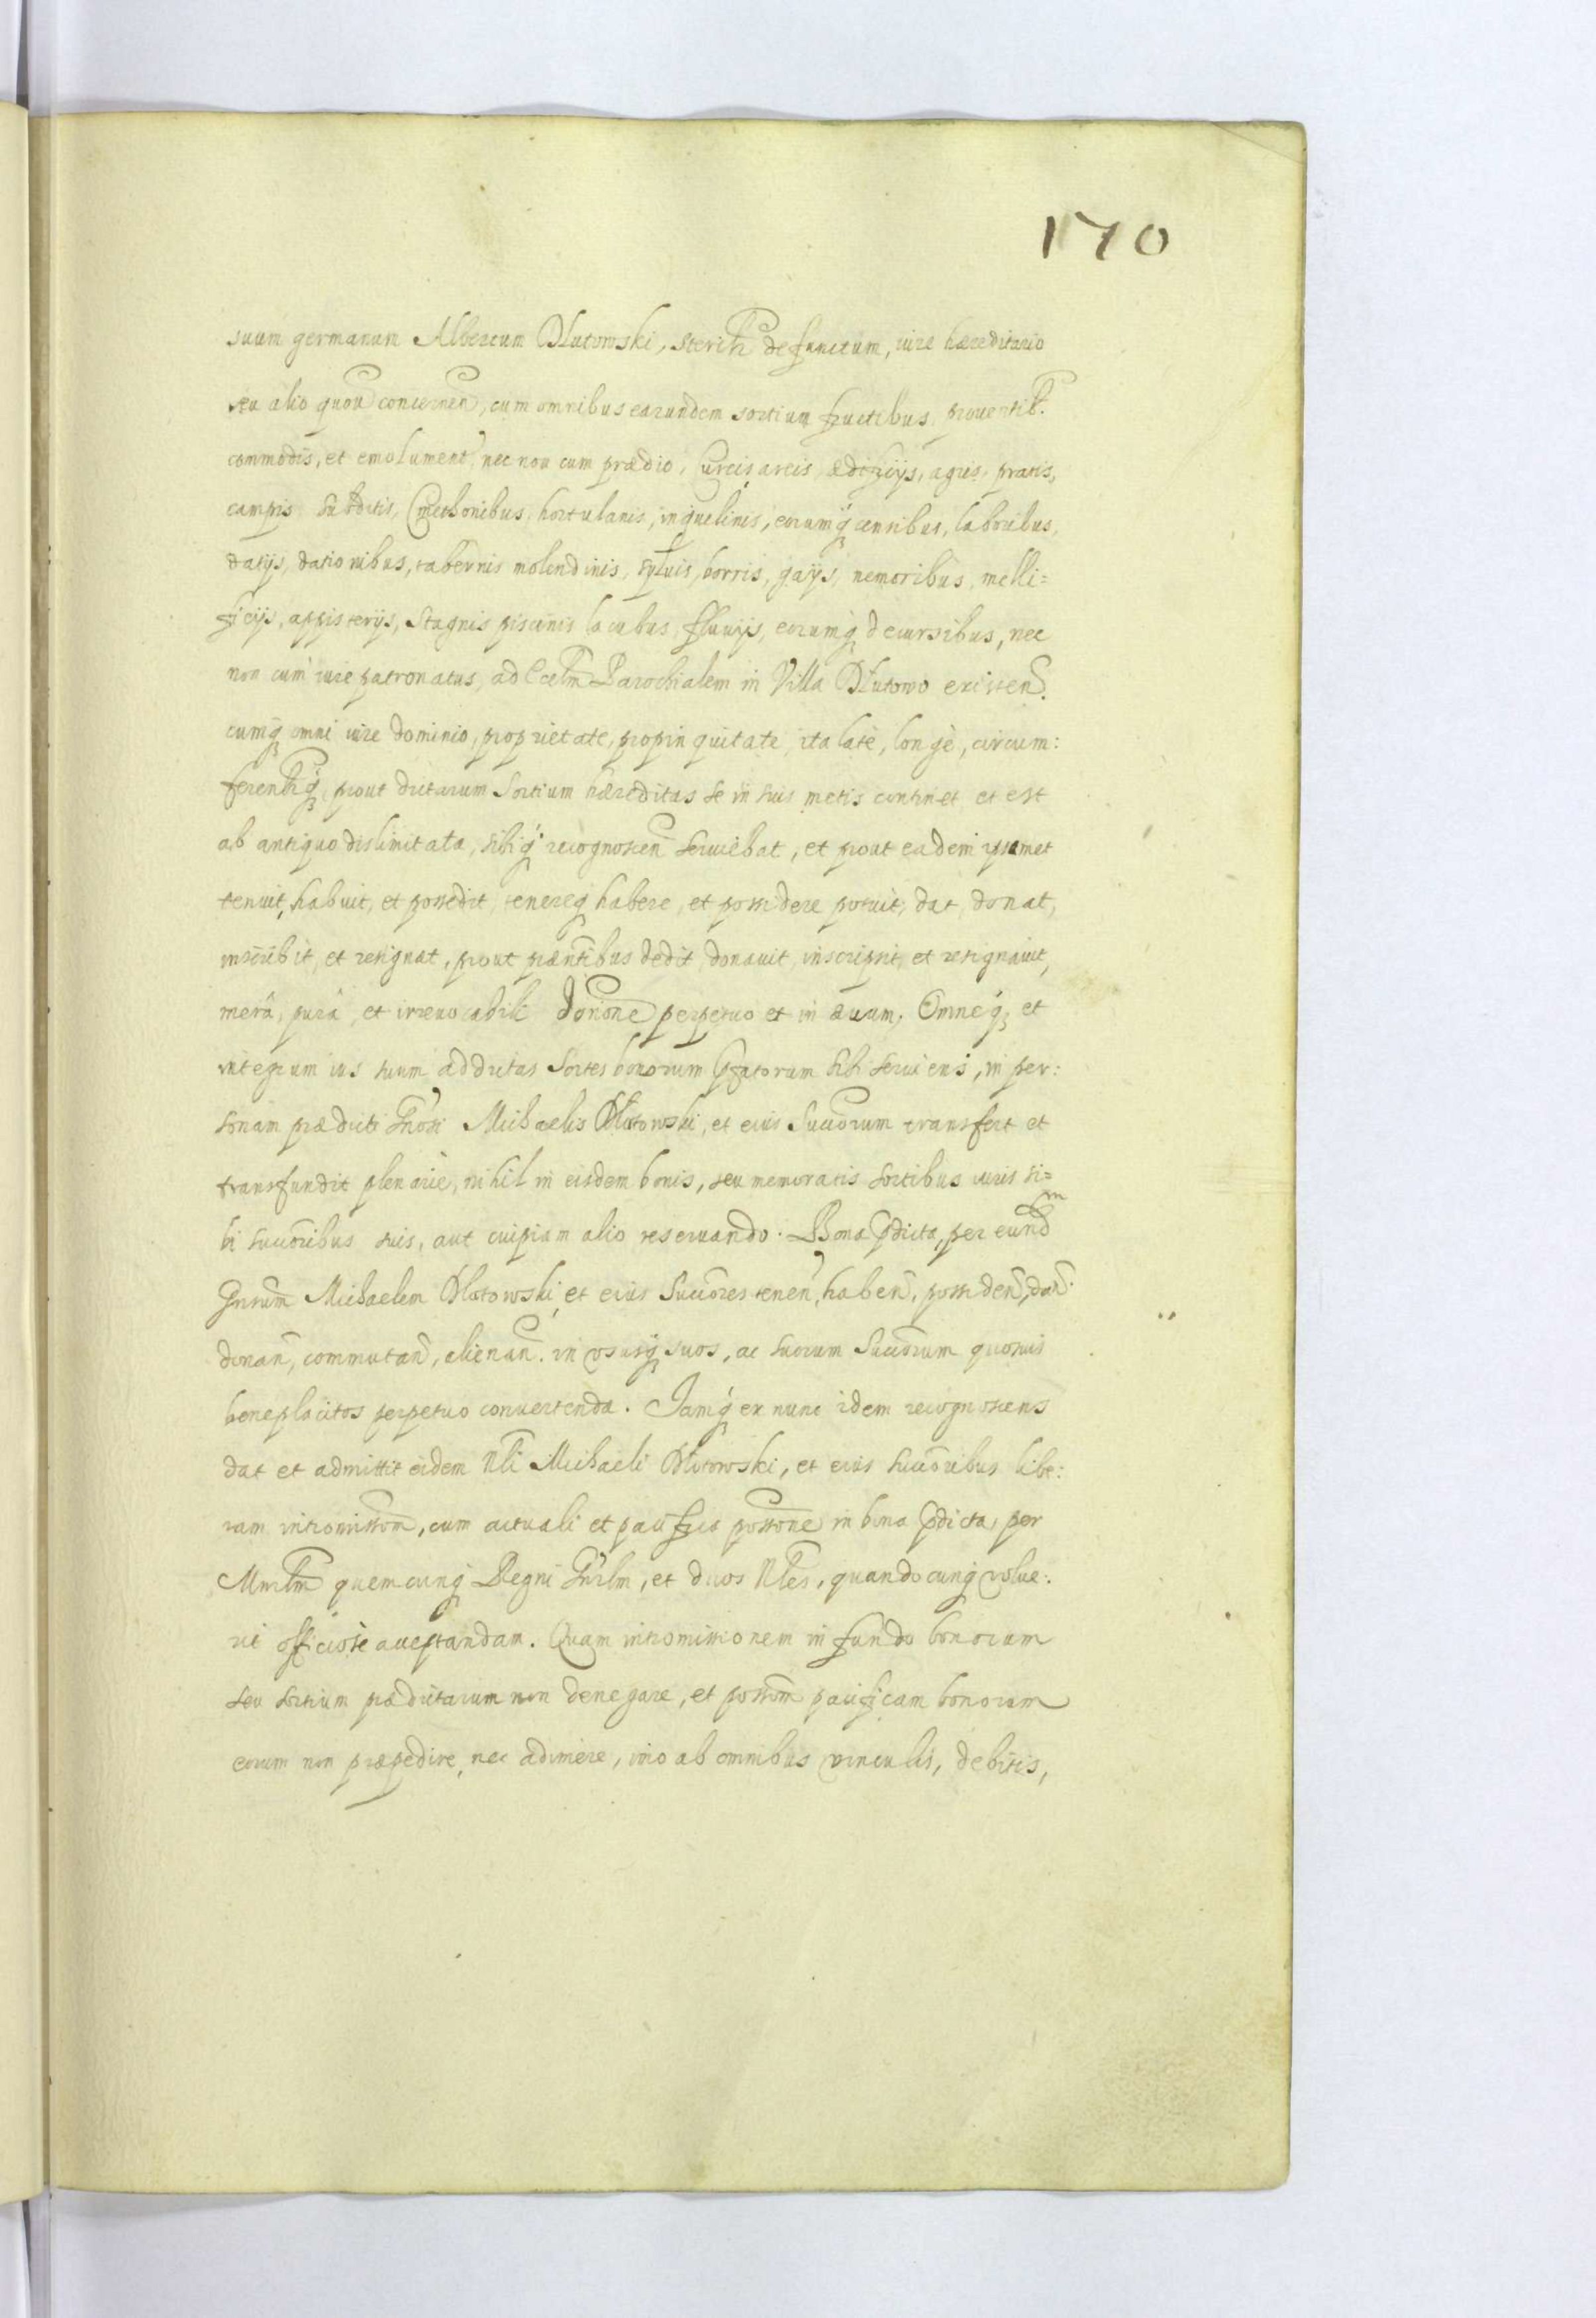 170
suum germanum Albertum Dłutowski, sterił defunctum, iure hæreditario
seu alio quou concernen, cum omnibus earundem sortium fructibus prouentib.
commodis, et emolument nec non cum prædio, Curcis, areis, ædificijs, agris, pratis,
campis subditis, Cmethonibus, hortulanis, inquilinis, eorumq censibus, laboribus,
datijs, dationibus, tabernis molendinis, syluis, borris, gaijs, nemoribus, melli=
ficijs, appisterijs, Stagnis piscinis lacubus, fluuijs, eorumq decursibus, nec
non cum iure patronatus, ad Eccłm Parochialem in Villa Dłutowo existen.
cumq omni iure dominio, proprietate, propinquitate, ita latè, longè, circum:
ferenłq, prout dictarum Sortium hæreditas se in suis metis continet et est
ab antiquo dislimitata, sibiq recognoscen seruiebat, et prout eadem ipsamet
tenuit, habuit, et possedit, tenereq habere, et possidere potuit, dat, donat,
inscribit, et resignat, prout præntibus dedit, donauit, inscripsit, et resignauit,
merâ, purâ, et irreuocabili donone perpetuo et in æuum, Omneq, et
integrum ius suum ad dictas Sortes bonorum pfatorum sibi seruiens, in per:
sonam prædicti Gnosi Michaelis Dłotowski, et eius Succorum transfert et
transfundit plenarie, nihil in eisdem bonis, seu memoratis sortibus iuris si=
bi succoribus suis, aut cuipiam alio reseruando. Bona pdicta, per eund m
Gnsum Michaelem Dłotowski, et eius Succores tenen, haben, possiden, dan
donan, commutan, alienan. in ususq suos, ac suorum Succorum quosuis
beneplacitos perpetuo conuertenda. Jamq ex nunc idem recognoscens
dat et admittit eidem Nłi Michaeli Dłotowski, et eius succoribus libe:
ram intromissom, cum actuali et pacifica possone in bona pdicta, per
Mnrłm quemcunq Regni Gnrłm, et duos Nłes, quandocunq volue:
rit officiosè acceptandam. Quam intromissionem in fundo bonorum
seu sortium prædictarum non denegare, et possom pacificam bonorum
eorum non præpedire, nec adimere, imo ab omnibus vinculis, debitis,